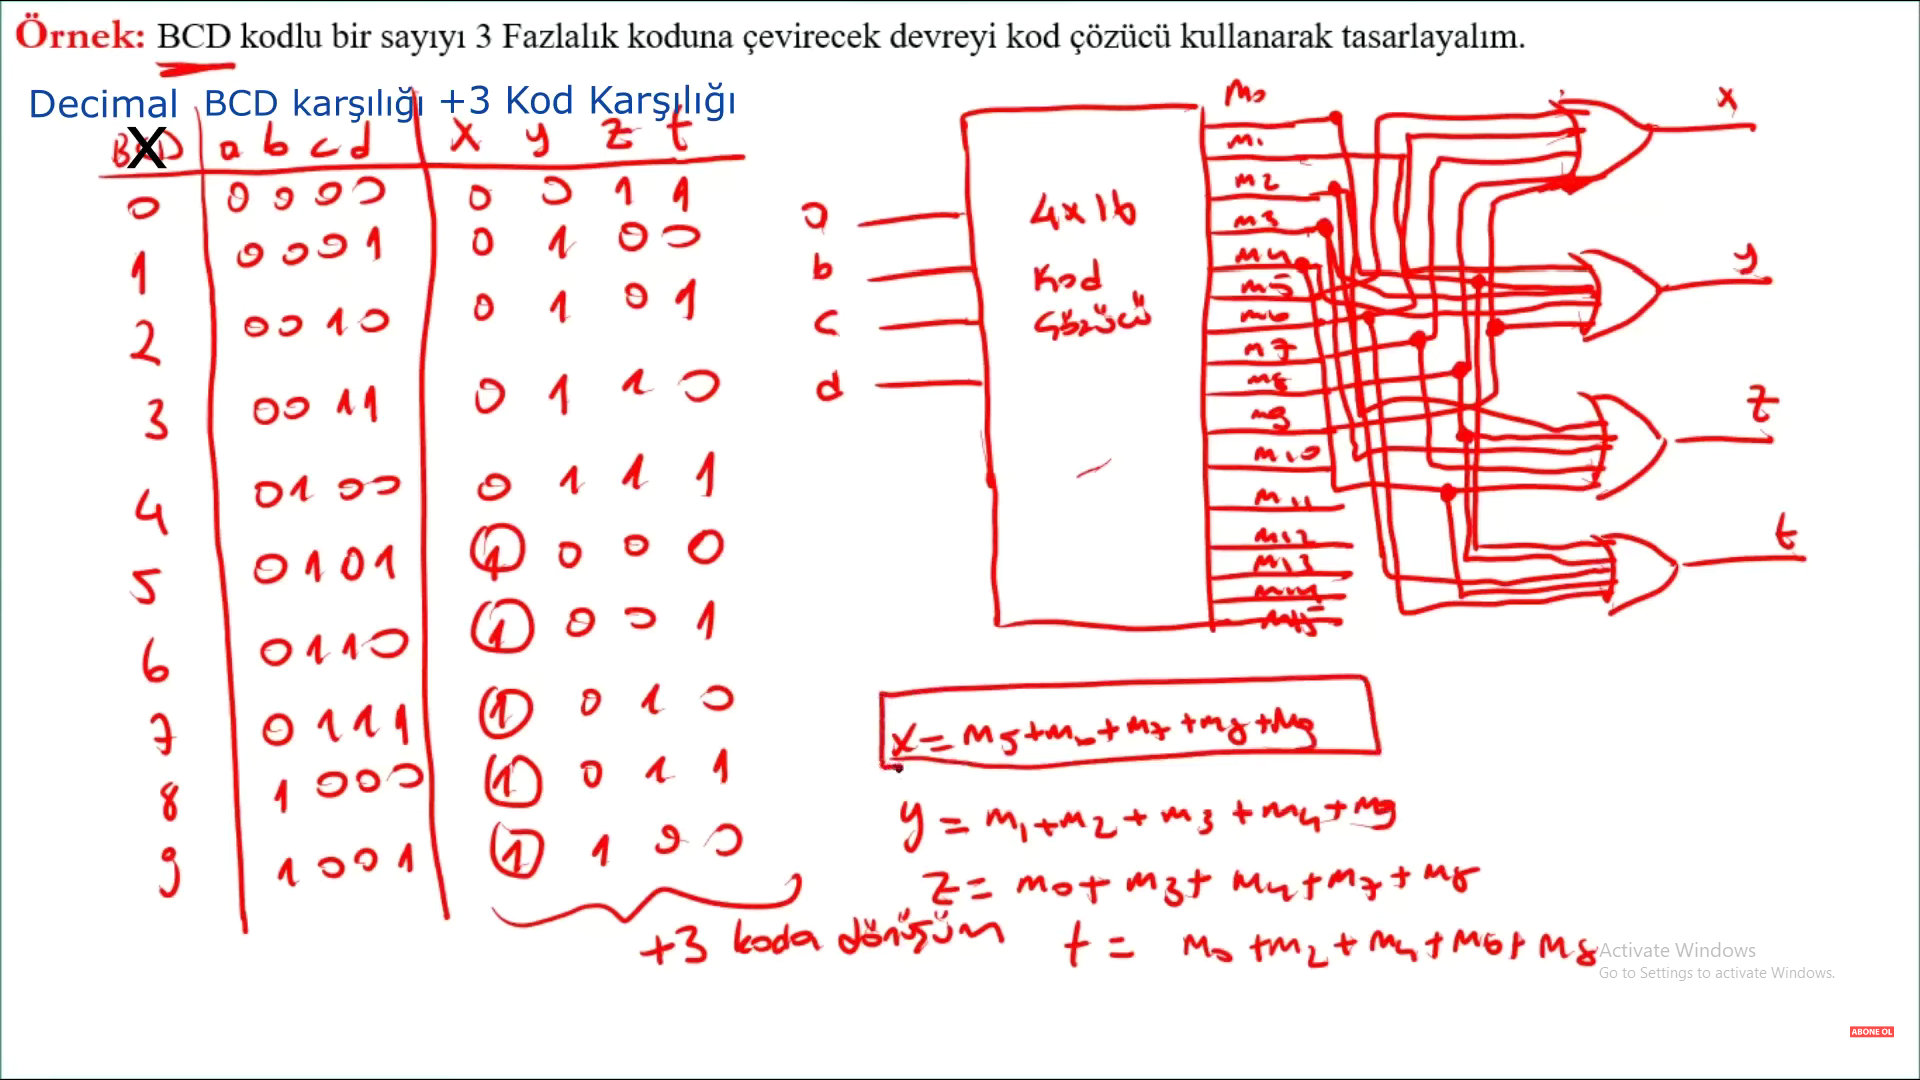 Örnek: BCD kodlu bir sayıyı 3 Fazlalık koduna çevirecek devreyi kod çözücü kullanarak tasarlayalım.
Decimal BCD karşılığı +3 Kod Karşılığı
BCD X a b c d x y z t
0 0000 0 0 1 1
1 0001 0 1 0 0
2 0010 0 1 0 1
3 0011 0 1 1 0
4 0100 0 1 1 1
5 0101 1 0 0 0
6 0110 1 0 0 1
7 0111 1 0 1 0
8 1000 1 0 1 1
9 1001 1 1 0 0
+3 koda dönüşüm
a
b
c
d
4x16
Kod
Çözücü
m0
m1
m2
m3
m4
m5
m6
m7
m8
m9
m10
m11
m12
m13
m14
m15
x
y
z
t
x = m5+m6+m7+m8+m9
y = m1+m2+m3+m4+m9
z = m0+m3+m4+m7+m8
t = m0+m2+m4+m6+m8
Activate Windows
Go to Settings to activate Windows.
ABONE OL